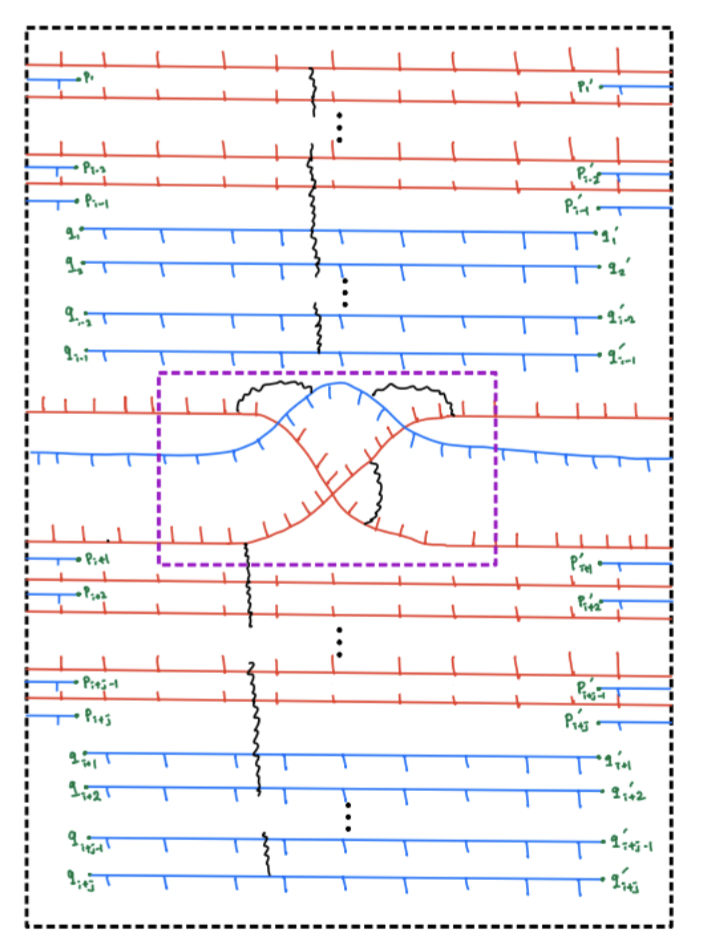 P₁ P₁'
Pᵢ₋₂ P'ᵢ₋₂
Pᵢ₋₁ P'ᵢ₋₁
q₁ q₁'
q₂ q₂'
qᵢ₋₂ q'ᵢ₋₂
qᵢ₋₁ q'ᵢ₋₁
Pᵢ₊₁ P'ᵢ₊₁
Pᵢ₊₂ P'ᵢ₊₂
Pᵢ₊ⱼ₋₁ P'ᵢ₊ⱼ₋₁
Pᵢ₊ⱼ P'ᵢ₊ⱼ
qᵢ₊₁ q'ᵢ₊₁
qᵢ₊₂ q'ᵢ₊₂
qᵢ₊ⱼ₋₁ q'ᵢ₊ⱼ₋₁
qᵢ₊ⱼ q'ᵢ₊ⱼ